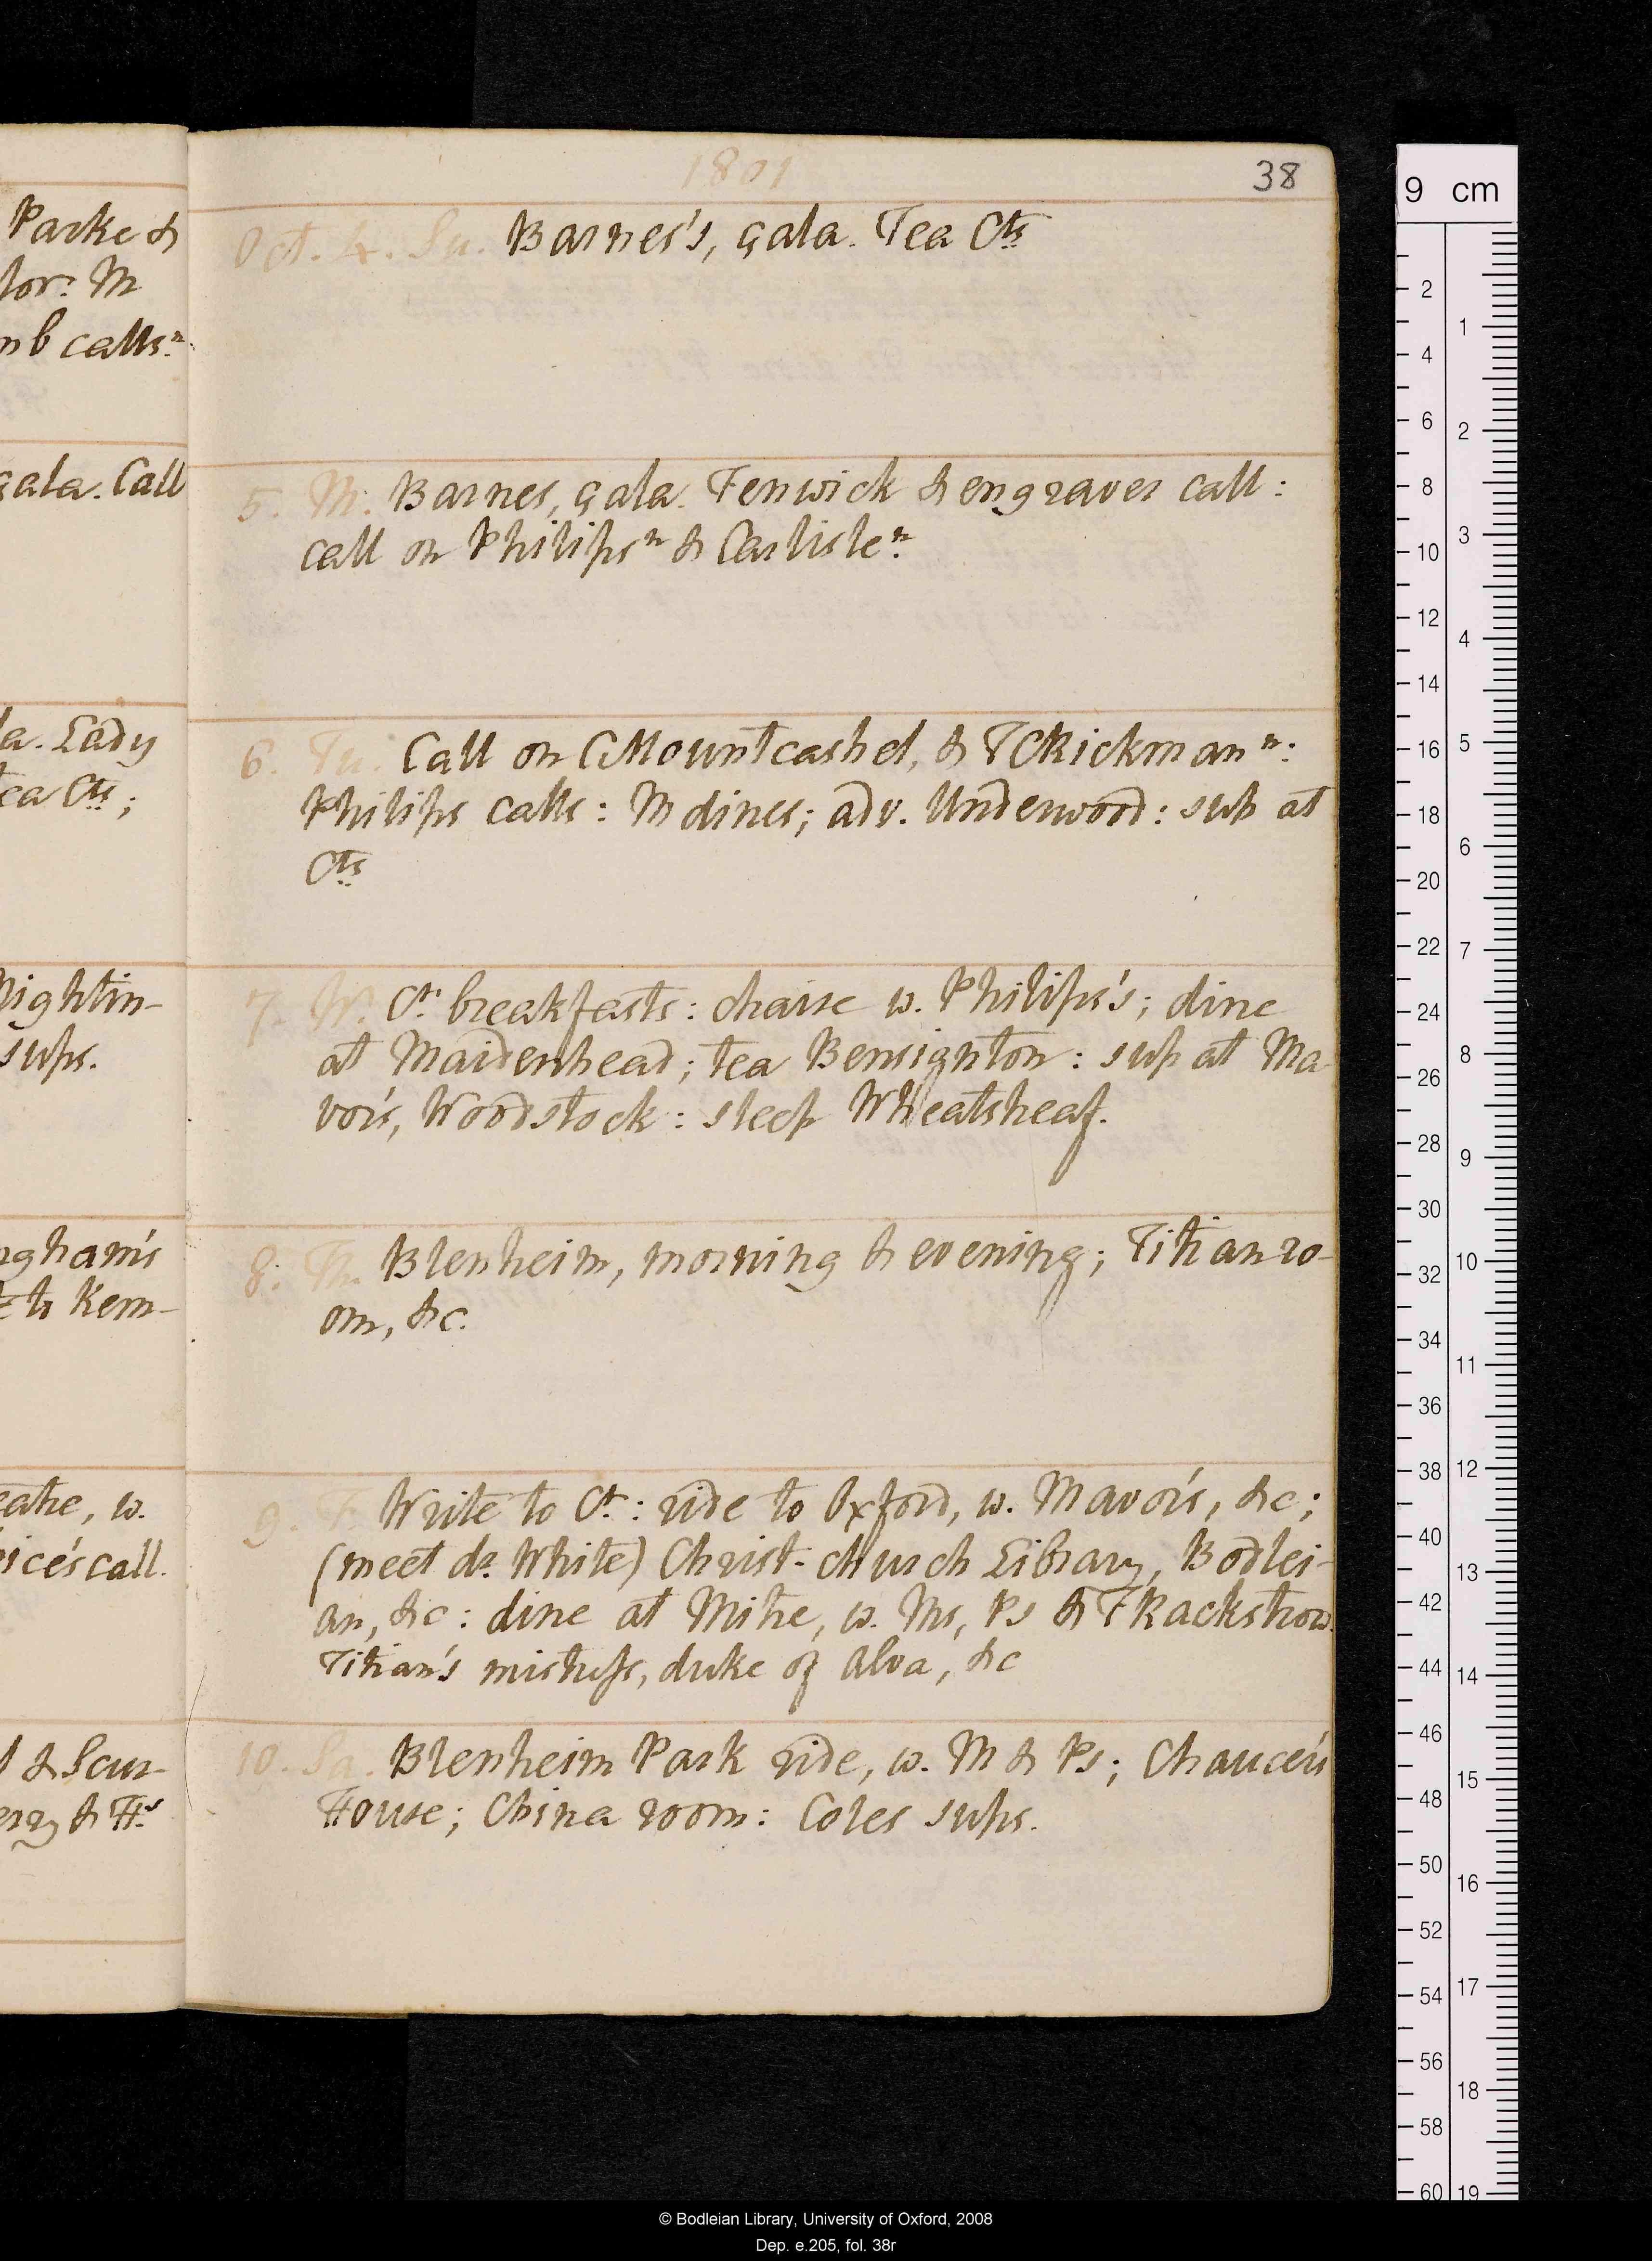 Parke &
lor: M
mb calls n.
gala. Call
la. Lady
tea Cts;
Nightin-
sups.
ngham's
Kem-
eatre, w.
ice's call.
& Scur-
1801
38
Oct. 4. Su. Barnes's, gala. Tea Cts
5. M. Barnes, gala. Fenwick & engraver call:
call on Philips n & Carlisle n.
6. Tu. Call on CMountcashel, & TCRickman n:
Philips calls: M dines; adv. Underwood: sup at
Cts
7. W. Ct breakfasts: chaise w. Philips's; dine
at Maidenhead; tea Bensignton: sup at Ma-
vor's, Woodstock: sleep Wheatsheaf.
8. Th. Blenheim, morning & evening; Titian ro-
om, &c.
9. F. Write to Ct: ride to Oxford, w. Mavor's, &c;
(meet dr. White) Christ-church Library, Bodlei-
an, &c: dine at Mitre, w. Ms, Ps & TRackstrow.
Titian's mistress, duke of Alva, &c
10. Sa. Blenheim Park ride, w. M & Ps; Chaucer's
House; China room: Coles sups.
9 cm
2 4 6 8 10 12 14 16 18 20 22 24 26 28 30 32 34 36 38 40 42 44 46 48 50 52 54 56 58 60
1 2 3 4 5 6 7 8 9 10 11 12 13 14 15 16 17 18 19
© Bodleian Library, University of Oxford, 2008
Dep. e.205, fol. 38r